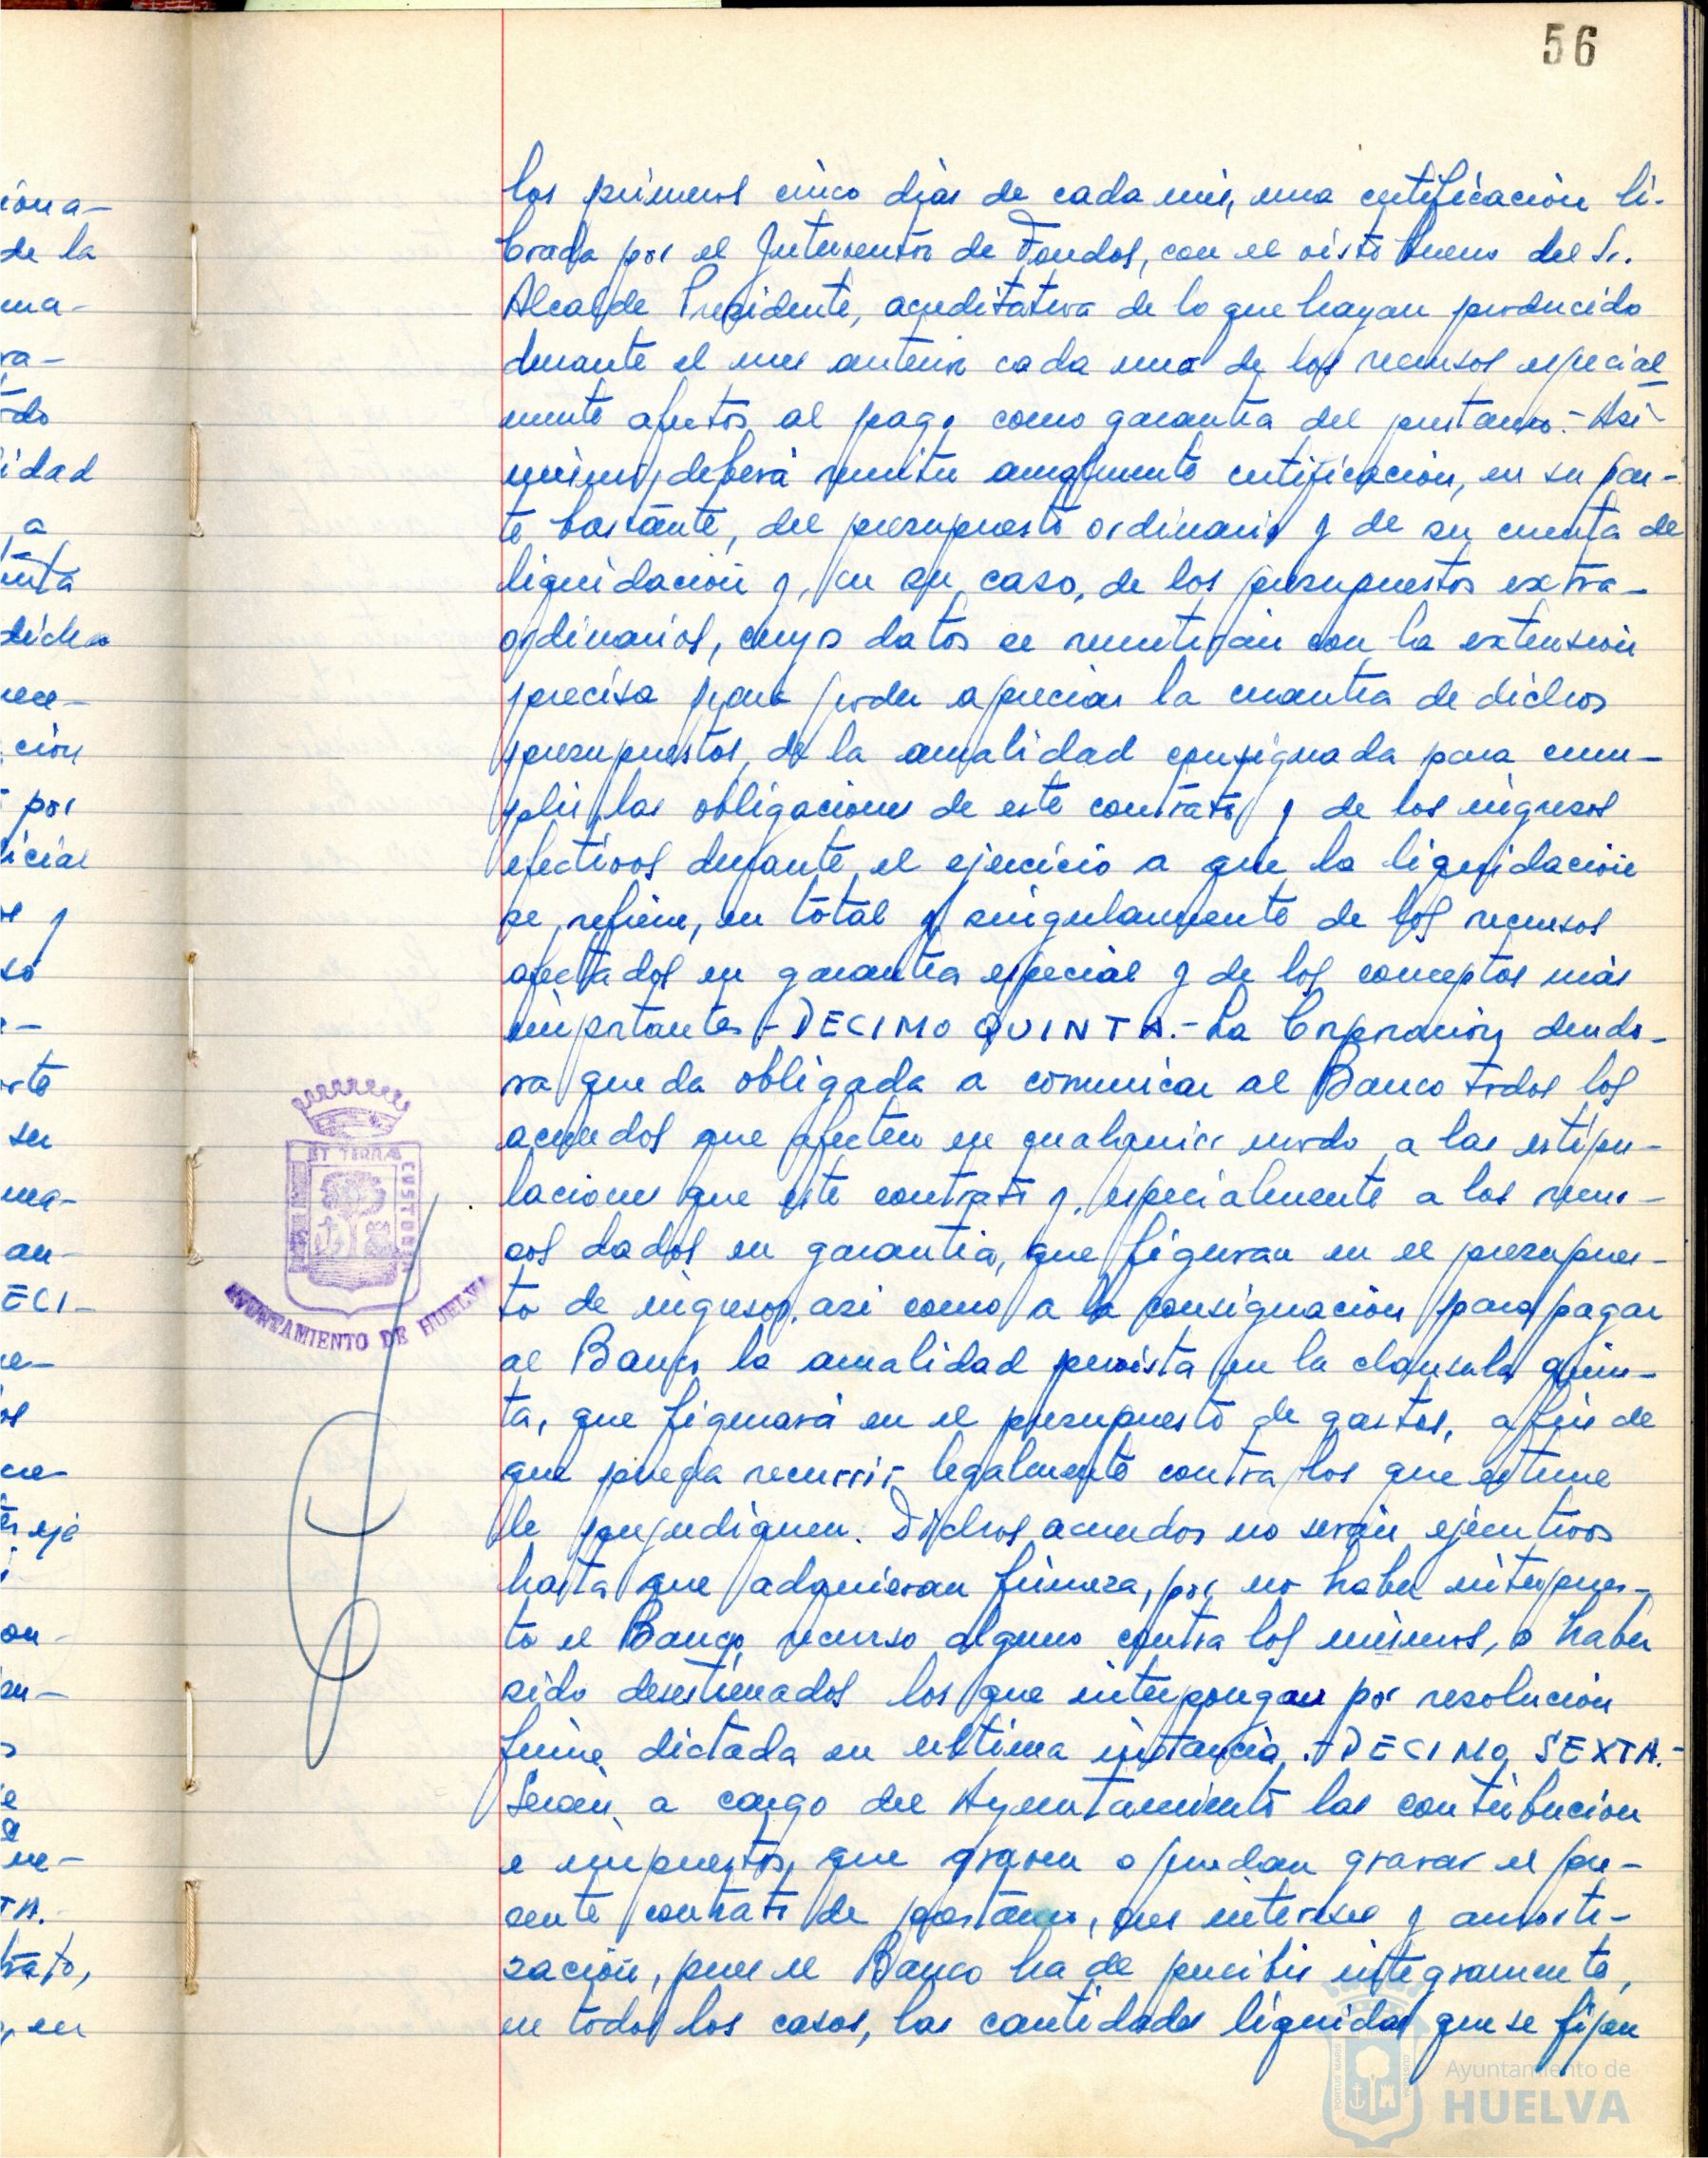 56
los primeros cinco dias de cada mes, una certificación li-
brada por el Interventor de Fondos, con el visto bueno del Sr.
Alcalde Presidente, acreditativa de lo que hayan producido
durante el mes anterior cada uno de los recursos especial
mente afectos al pago como garantia del prestamo.- Asi
mismo, deberá remitir anualmente certificación, en su par-
te bastante, del presupuesto ordinario y de su cuenta de
liquidación y, en su caso, de los presupuestos extra-
ordinarios, cuyos datos se remitirán con la extensión
precisa para poder apreciar la cuantia de dichos
presupuestos, de la anualidad consignada para cum-
plir las obligaciones de este contrato y de los ingresos
efectivos durante el ejercicio a que la liquidación
se refiere, en total y singularmente de los recursos
afectados en garantia especial y de los conceptos más
importantes.- DECIMO QUINTA.- La Corporación deudo-
ra queda obligada a comunicar al Banco todos los
acuerdos que afecten en cualquier modo a las estipu-
laciones que este contrato y, especialmente a los recur-
sos dados en garantia, que figuran en el presupues-
to de ingresos, asi como a la consignación para pagar
al Banco la anualidad prevista en la clausula quin-
ta, que figurará en el presupuesto de gastos, a fin de
que pueda recurrir legalmente contra los que estime
le perjudiquen. Dichos acuerdos no serán ejecutivos
hasta que adquieran firmeza, por no haber interpues-
to el Banco recurso alguno contra los mismos, o haber
sido desestimados los que interpongan por resolución
firme dictada en ultima instancia.- DECIMO SEXTA.-
Serán a cargo del Ayuntamiento las contribucion
e impuestos, que graven o puedan gravar el pre-
sente contrato de prestamo, sus intereses y amorti-
zación, pues el Banco ha de percibir integramente,
en todos los casos, las cantidades liquidas que se fijan
iona-
de la
ma-
ra-
do
idad
a
enta
dicha
ción
por
icial
su
ma-
an-
ECI-
eje
on-
TA.
en
ET TERRAE CUSTODIA
AYUNTAMIENTO DE HUELVA
Ayuntamiento de
HUELVA